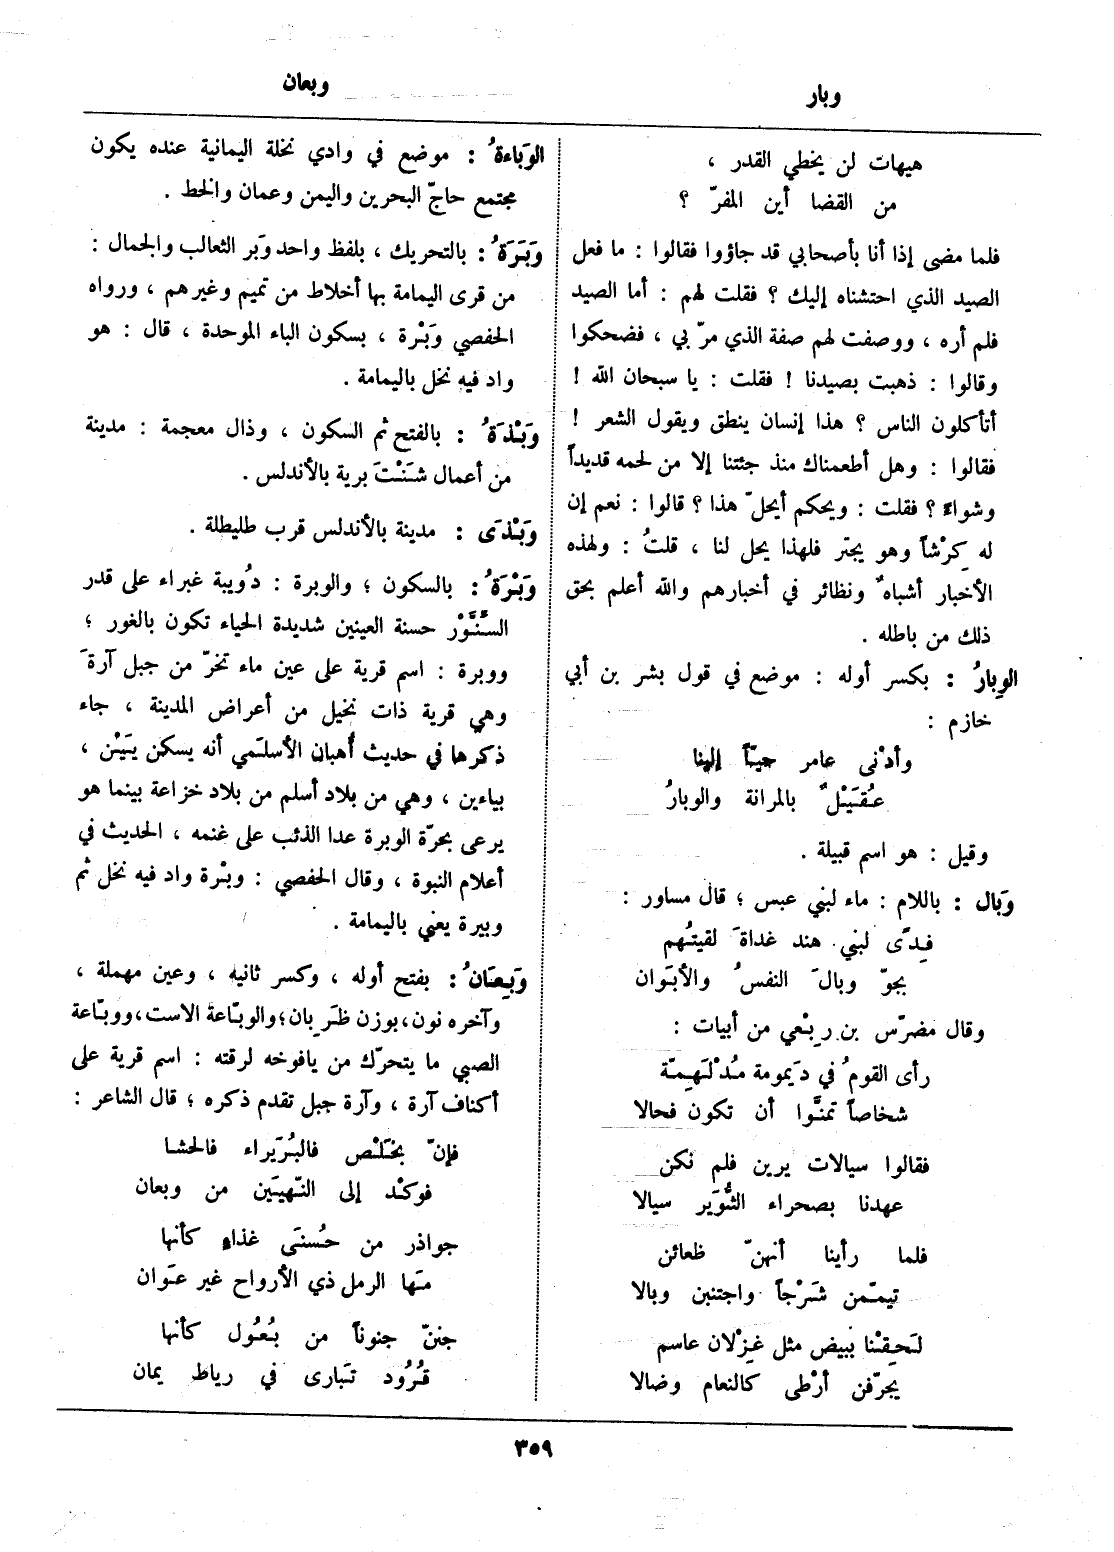 وبار
وبعان
هيهات لن يخطي القدر ،
من القضا أين المفرّ ؟
فلما مضى إذا أنا بأصحابي قد جاؤوا فقالوا : ما فعل
الصيد الذي احتشناه إليك ؟ فقلت لهم : أما الصيد
فلم أره ، ووصفت لهم صفة الذي مرّ بي ، فضحكوا
وقالوا : ذهبت بصيدنا ! فقلت : يا سبحان الله !
أتأكلون الناس ؟ هذا إنسان ينطق ويقول الشعر !
فقالوا : وهل أطعمناك منذ جئتنا إلا من لحمه قديداً
وشواءً ؟ فقلت : ويحكم أيحلّ هذا ؟ قالوا : نعم إن
له كِرْشاً وهو يجتر فلهذا يحل لنا ، قلتُ : ولهذه
الأخبار أشباهٌ ونظائر في أخبارهم والله أعلم بحق
ذلك من باطله .
الوِبارُ : بكسر أوله : موضع في قول بشر بن أبي
خازم :
وأدْنى عامر حيّاً إلينا
عُقَيْلٌ بالمرانة والوبارُ
وقيل : هو اسم قبيلة .
وَبال : باللام : ماء لبني عبس ؛ قال مساور :
فِدًى لبني هند غداةَ لقيتُهم
بجوّ وبالَ النفسُ والأبَوان
وقال مضرّس بن رِبْعي من أبيات :
رأى القومُ في دَيمومة مُدْلَهِمّة
شخاصاً تمنَّوا أن تكون فحالا
فقالوا سيالات يرين فلم نكن
عهدنا بصحراء الثُّوَير سيالا
فلما رأينا أنهنّ ظعائن
تيمّمن شَرْجاً واجتنبن وبالا
لَحِقْنا ببيض مثل غِزْلان عاسم
يجرّفن أرْطى كالنعام وضالا
الوَباءةُ : موضع في وادي نخلة اليمانية عنده يكون
مجتمع حاجّ البحرين واليمن وعمان والخط .
وَبَرَةُ : بالتحريك ، بلفظ واحد وَبَر الثعالب والجمال :
من قرى اليمامة بها أخلاط من تميم وغيرهم ، ورواه
الحفصي وَبْرة ، بسكون الباء الموحدة ، قال : هو
واد فيه نخل باليمامة .
وَبْذَةُ : بالفتح ثم السكون ، وذال معجمة : مدينة
من أعمال شَنْتَ برية بالأندلس .
وَبْذَى : مدينة بالأندلس قرب طليطلة .
وَبْرَةُ : بالسكون ؛ والوبرة : دُويبة غبراء على قدر
السِّنَّوْر حسنة العينين شديدة الحياء تكون بالغور ؛
ووبرة : اسم قرية على عين ماء تخرّ من جبل آرةَ
وهي قرية ذات نخيل من أعراض المدينة ، جاء
ذكرها في حديث أُهبان الأسلَمي أنه يسكن يَيْن ،
بياءين ، وهي من بلاد أسلم من بلاد خزاعة بينما هو
يرعى بحرّة الوبرة عدا الذئب على غنمه ، الحديث في
أعلام النبوة ، وقال الحفصي : وبْرة واد فيه نخل ثم
وبيرة يعني باليمامة .
وَبِعَانُ : بفتح أوله ، وكسر ثانيه ، وعين مهملة ،
وآخره نون، بوزن ظَرِبان؛ والوبّاعة الاست، ووبّاعة
الصبي ما يتحرّك من يافوخه لرقته : اسم قرية على
أكناف آرة ، وآرة جبل تقدم ذكره ؛ قال الشاعر :
فإنّ بخَلْص فالبُرَيراء فالحشا
فوكْد إلى النّهيَين من وبعان
جواذر من حُسنَى غذاءٍ كأنها
مَها الرمل ذي الأرواح غير عَوان
جننّ جنوناً من بُعُول كأنها
قُرُود تَبارى في رياط يمان
٣٥٩